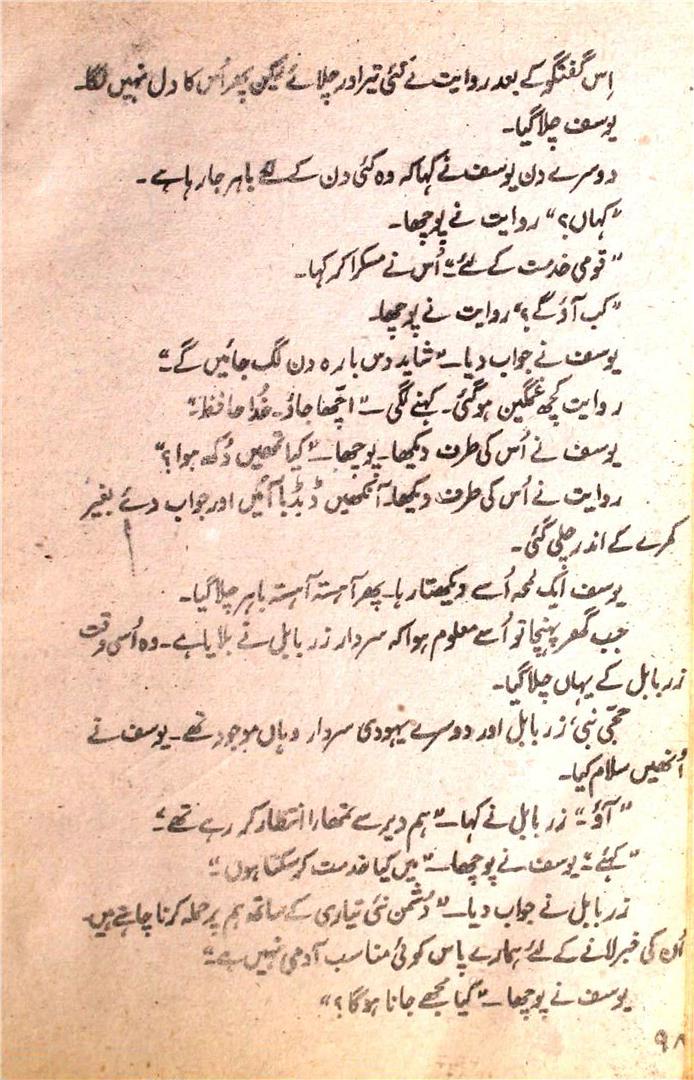 اِس گفتگو کے بعد روایت نے کئی تیر اور چلائے لیکن پھر اُس کا دل نہیں لگا۔
یوسف چلا گیا۔
دوسرے دن یوسف نے کہا کہ وہ کئی دن کے لئے باہر جا رہا ہے۔
”کہاں؟“ روایت نے پوچھا۔
”قومی خدمت کے لئے۔“ اُس نے مسکرا کر کہا۔
”کب آؤ گے؟“ روایت نے پوچھا۔
یوسف نے جواب دیا۔ ”شاید دس بارہ دن لگ جائیں گے۔“
روایت کچھ غمگین ہو گئی۔ کہنے لگی۔ ”اچّھا جاؤ۔ خُدا حافظ۔“
یوسف نے اُس کی طرف دیکھا۔ پوچھا۔ ”کیا تمھیں دُکھ ہوا؟“
روایت نے اُس کی طرف دیکھا۔ آنکھیں ڈبڈبا آئیں اور جواب دئے بغیر
کمرے کے اندر چلی گئی۔
یوسف ایک لمحہ اُسے دیکھتا رہا۔ پھر آہستہ آہستہ باہر چلا گیا۔
جب گھر پہنچا تو اُسے معلوم ہوا کہ سردار زربابل نے بلایا ہے۔ وہ اُسی وقت
زربابل کے یہاں چلا گیا۔
حجّی نبی، زربابل اور دوسرے یہودی سردار وہاں موجود تھے۔ یوسف نے
اُنھیں سلام کیا۔
”آؤ۔“ زربابل نے کہا۔ ”ہم دیر سے تمھارا انتظار کر رہے تھے۔“
”کہئے۔“ یوسف نے پوچھا۔ ”میں کیا خدمت کر سکتا ہوں۔“
زربابل نے جواب دیا۔ ”دُشمن نئی تیاری کے ساتھ ہم پر حملہ کرنا چاہتے ہیں۔
اُن کی خبر لانے کے لئے ہمارے پاس کوئی مناسب آدمی نہیں ہے۔“
یوسف نے پوچھا۔ ”کیا مجھے جانا ہو گا؟“
۹۸